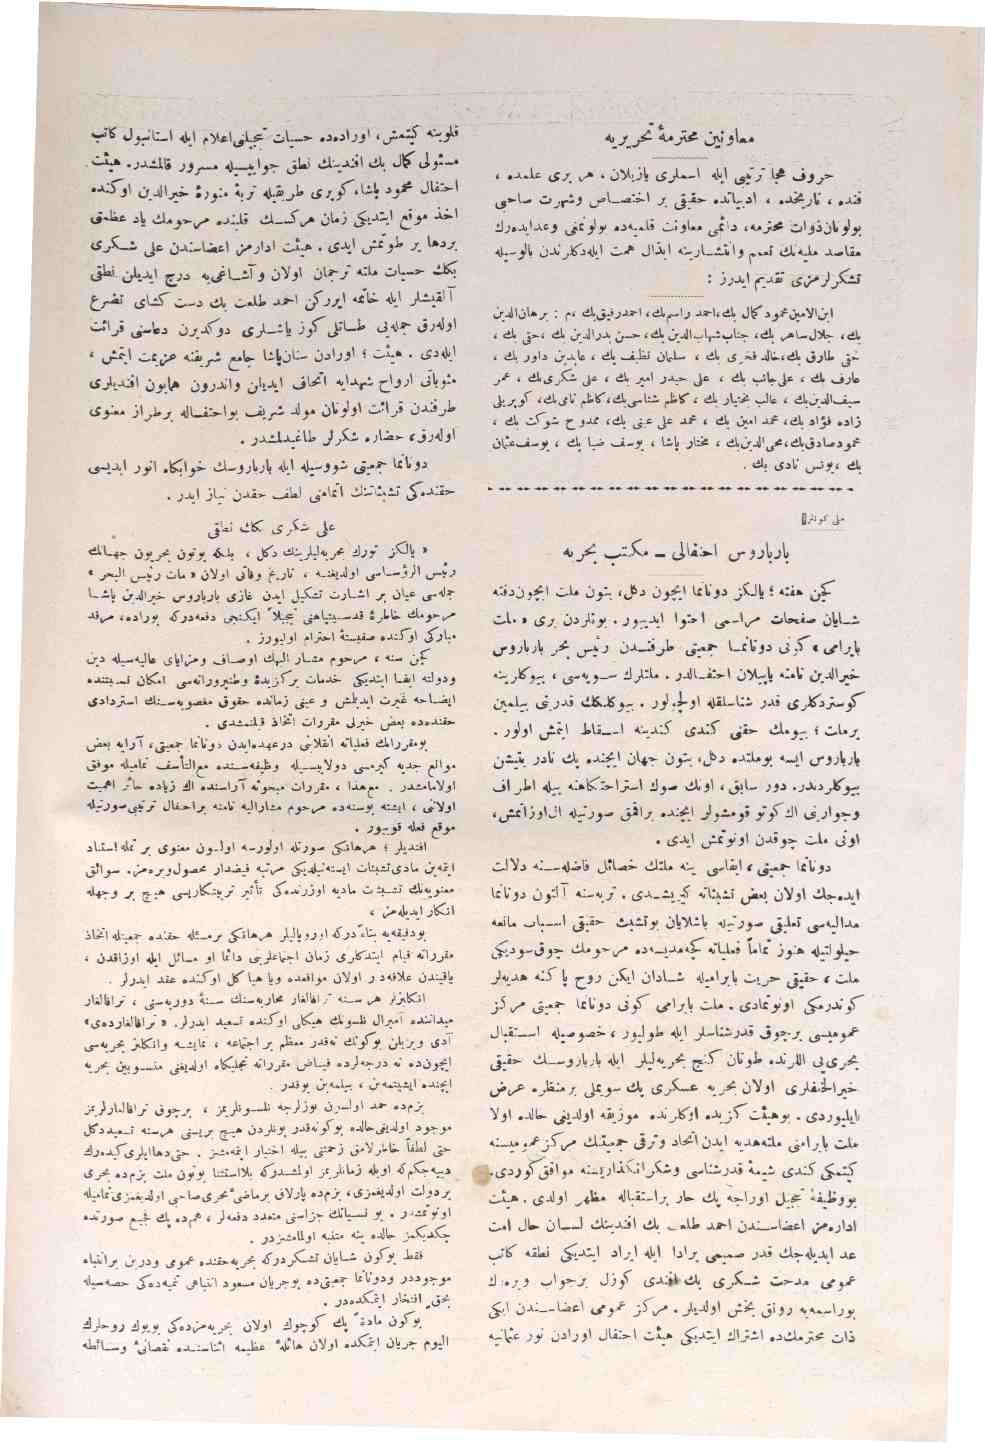 معاونين محترمهٔ تحريريه
حروف هجا ترتيبى ايله اسملرى يازيلان ، هر برى علمده ،
فنده ، تاريخده ، ادبياتده حقيقى بر اختصاص وشهرت صاحبى
بولونان ذوات محترمه ، دائمى معاونت قلميه‌ده بولونمغى وعد ايده‌رك
مقاصد مليه‌نك تعمم وانتشارينه ابذال همت ايله‌دكلرندن بالوسيله
تشكرلرمزى تقديم ايدرز :
ابن الامين محمود كمال بك ، احمد راسم بك ، احمد رفيق بك ، م : برهان الدين
بك ، جلال ساهر بك ، جناب شهاب الدين بك ، حسن بدرالدين بك ، حقى بك ،
حقى طارق بك ، خالد فخرى بك ، سليمان نظيف بك ، عابدين داور بك ،
عارف بك ، على جانب بك ، على حيدر امير بك ، على شكرى بك ، عمر
سيف الدين بك ، غالب بختيار بك ، كاظم شناسى بك ، كاظم نامى بك ، كوپريلى
زاده فؤاد بك ، محمد امين بك ، محمد على عينى بك ، ممدوح شوكت بك ،
محمود صادق بك ، محى الدين بك ، مختار پاشا ، يوسف ضيا بك ، يوسف عثمان
بك ، يونس نادى بك .
ملى كونلر
بارباروس احتفالى — مكتب بحريه
كچن هفته ؛ يالكز دونانما ايچون دكل ، بتون ملت ايچون دقته
شايان صفحات مراسمى احتوا ايدييور . بونلردن برى « ملت
بايرامى » كونى دونانما جمعيتى طرفندن رئيس بحر بارباروس
خيرالدين نامنه ياپيلان احتفالدر . ملتلرك سويه‌سى ، بيوكلرينه
كوستردكلرى قدر شناسلقله اولچيلور . بيوكلكك قدرينى بيلمين
برملت ؛ بيومك حقنى كندى كندينه اسقاط ايتمش اولور .
بارباروس ايسه بوملتده دكل ، بتون جهان ايچنده پك نادر يتيشن
بيوكلردندر . دور سابق ، اونك صوك استراحتكاهنه بيله اطراف
وجوارينى اك كوتو قومشولر ايچنده براقمق صورتيله ال اوزاتمش ،
اونى ملت چوقدن اونوتمش ايدى .
دونانما جمعيتى ، ايفاسى ينه ملتك خصائل فاضله‌سنه دلالت
ايده‌جك اولان بعض تشبثاته كيريشدى . تربه‌سنه آلتون دونانما
مداليه‌سى تعليقى صورتيله باشلايان بوتشبث حقيقى اسباب مانعه
حيلولتيله هنوز تماماً فعلياته كچه‌مديسه‌ده مرحومك چوق سوديكى
ملت ، حقيقى حريت بايراميله شادان ايكن روح پاكنه هديه‌لر
كوندرمكى اونوتمادى . ملت بايرامى كونى دونانما جمعيتى مركز
عموميسى برچوق قدرشناسلر ايله طولييور ، خصوصيله استقبال
بحريى اللرنده طوتان كنج بحريه‌ليلر ايله بارباروسك حقيقى
خيرالخلفلرى اولان بحريه عسكرى پك سويملى بر منظره عرض
ايلييوردى . بوهيئت كزيده اوكلرنده موزيقه اولديغى حالده اولا
ملت بايرامنى ملته هديه ايدن اتحاد وترقى جمعيتنك مركز عموميسنه
كيتمكى كندى شيمهٔ قدرشناسى وشكرانكذاريسنه موافق كوردى .
بووظيفهٔ تبجيل اوراجه پك حار براستقباله مظهر اولدى . هيئت
اداره‌مز اعضاسندن احمد طلعت بك افندينك لسان حال امت
عد ايديله‌جك قدر صميمى برادا ايله ايراد ايتديكى نطقه كاتب
عمومى مدحت شكرى بك افندى كوزل برجواب ويره‌رك
بوراسمه‌يه رونق بخش اولديلر . مركز عمومى اعضاسندن ايكى
ذات محترمك‌ده اشتراك ايتديكى هيئت احتفال اورادن نور عثمانيه
قلوبنه كيتمش ، اوراده‌ده حسيات تبجيلنى اعلام ايله استانبول كاتب
مسئولى كمال بك افندينك نطق جوابيسيله مسرور قالمشدر . هيئت
احتفال محمود پاشا ، كوپرى طريقيله تربهٔ منورهٔ خيرالدين اوكنده
اخذ موقع ايتديكى زمان هركسك قلبنده مرحومك ياد عظمتى
بردها ير طوتمش ايدى . هيئت ادارمز اعضاسندن على شكرى
بكك حسيات ملته ترجمان اولان وآشاغى‌يه درج ايديلن نطقى
آلقيشلر ايله خاتمه ايرركن احمد طلعت بك دست كشاى تضرع
اوله‌رق جمله‌يى طاتلى كوز ياشلرى دوكديرن دعاسنى قرائت
ايله‌دى . هيئت ؛ اورادن سنان پاشا جامع شريفنه عزيمت ايتمش ،
مثوباتى ارواح شهدايه اتحاف ايديلن واندرون همايون افنديلرى
طرفندن قرائت اولونان مولد شريف بواحتفاله برطراز معنوى
اوله‌رق ، حضاره شكرلر طاغيدلمشدر .
دونانما جمعيتى شووسيله ايله بارباروسك خوابكاه انور ابديسى
حقنده‌كى تشبثاتنك اتمامنى لطف حقدن نياز ايدر .
على شكرى بكك نطقى
« يالكز تورك بحريه‌ليلرينك دكل ، بلكه بوتون بحريون جهانك
رئيس الرؤساسى اولديغنه ، تاريخ وفاتى اولان « مات رئيس البحر »
جمله‌سى عيان بر اشارت تشكيل ايدن غازى بارباروس خيرالدين پاشا
مرحومك خاطرهٔ قدسيتپناهنى تبجيلاً ايكنجى دفعه‌دركه بوراده ، مرقد
مباركى اوكنده صفبستهٔ احترام اوليورز .
كچن سنه ، مرحوم مشار اليهك اوصاف ومزاياى عاليه‌سيله دين
ودولته ايفا ايتديكى خدمات بركزيدهٔ وطنپرورانه‌سى امكان نسبتنده
ايضاحه غيرت ايديلمش و عينى زمانده حقوق مغصوبه‌سنك استردادى
حقنده‌ده بعض خيرلى مقررات اتخاذ قيلنمشدى .
بومقرراتك فعلياته انقلابنى درعهده ايدن دونانما جمعيتى ، آرايه بعض
موانع جديه كيرمسى دولاييسيله وظيفه‌سنده مع التأسف تماميله موفق
اولامامشدر . مع‌هذا ، مقررات مبحوثه آراسنده اك زياده حائز اهميت
اولانى ، ايشته بوسنه‌ده مرحوم مشاراليه نامنه براحتفال ترتيبى صورتيله
موقع فعله قونيور .
افنديلر ؛ هرهانكى صورتله اولورسه اولسون معنوى بر تمله استناد
ايتمه‌ين مادى تشبثات ايسته‌نيلديكى مرتبه فيضدار محصول ويره‌مز . سوائق
معنويه‌نك تشبثات ماديه اوزرنده‌كى تأثير تربيتكاريسى هيچ بر وجهله
انكار ايديله‌مز ،
بودقيقه‌يه بناءً دركه اوروپاليلر هرهانكى برمسئله حقنده جمعيتله اتخاذ
مقرراته قيام ايتدكلرى زمان اجتماعلرينى دائما او مسائل ايله اوزاقدن ،
ياقيندن علاقه‌دار اولان مواقعده وياهياكل اوكنده عقد ايدرلر .
انكليزلر هر سنه ترافالغار محاربه‌سنك سنهٔ دوريه‌سنى ، ترافالغار
ميداننده آميرال نلسونك هيكلى اوكنده تسعيد ايدرلر . « ترافالغارده‌ى »
آدى ويريلن بوكونك نه‌قدر معظم بر اجتماعه ، نمايشه وانكليز بحريه‌سى
ايچون‌ده نه درجه‌لرده فيضاض مقرراته تجليكاه اولديغنى منسوبين بحريه
ايچنده ايشيتمه‌ين ، بيلمه‌ين يوقدر .
بزم‌ده حمد اولسون يوزلرجه نلسونلريمز ، برچوق ترافالغارلريمز
موجود اولديغى حالده بوكونه‌قدر بونلردن هيچ بريسنى هرسنه تسعيد دكل
حتى لطفاً خاطرلامق زحمتنى بيله اختيار ايتمه‌مشز . حتى دها ايلرى كيده‌رك
دييه‌جكم‌كه اويله زمانلريمز اولمشدركه بلااستثنا بوتون ملت بزم‌ده بحرى
بردولت اولديغمزى ، بزم‌ده پارلاق برماضىٔ بحرى صاحبى اولديغمزى تماميله
اونوتمشدر . بو نسيانك جزاسنى متعدد دفعه‌لر ، هم‌ده پك فجيع صورتده
چكديكمز حالده ينه متنبه اولمامشزدر .
فقط بوكون شايان تشكردركه بحريه حقنده عمومى ودرين برانتباه
موجوددر ودونانما جمعيتى‌ده بوجريان مسعود انتباهى تنميه‌ده‌كى حصه‌سيله
بحق افتخار ايتمكده‌در .
بوكون مادةً پك كوچوك اولان بحريه‌مزده‌كى بويوك روحلرك
اليوم جريان ايتمكده اولان هائلهٔ عظيمه اثناسنده نقصانىٔ وسائطه